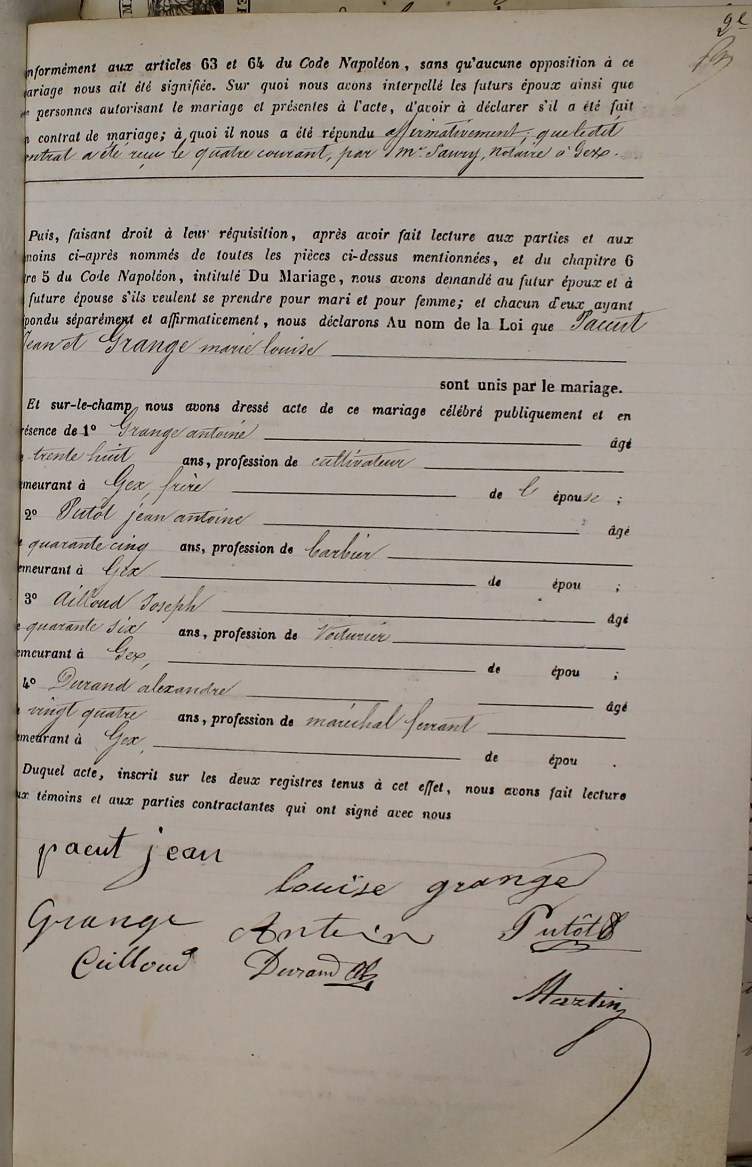 9e
nformément aux articles 63 et 64 du Code Napoléon, sans qu'aucune opposition à ce
ariage nous ait été signifiée. Sur quoi nous avons interpellé les futurs époux ainsi que
personnes autorisant le mariage et présentes à l'acte, d'avoir à déclarer s'il a été fait
contrat de mariage; à quoi il nous a été répondu affirmativement; que ledit
ontrat a été reçu le quatre courant, par Mr Saury, notaire à Gex.
Puis, faisant droit à leur réquisition, après avoir fait lecture aux parties et aux
moins ci-après nommés de toutes les pièces ci-dessus mentionnées, et du chapitre 6
tre 5 du Code Napoléon, intitulé Du Mariage, nous avons demandé au futur époux et à
future épouse s'ils veulent se prendre pour mari et pour femme; et chacun d'eux ayant
pondu séparément et affirmativement, nous déclarons Au nom de la Loi que Pacut
Jean et Grange marie louise
sont unis par le mariage.
Et sur-le-champ nous avons dressé acte de ce mariage célébré publiquement et en
résence de 1o Grange antoine âgé
e trente huit ans, profession de cultivateur
emeurant à Gex, frère de l'épouse ;
2o Putôt jean antoine âgé
e quarante cinq ans, profession de barbier
emeurant à Gex de épou ;
3o Ailloud Joseph âgé
e quarante six ans, profession de voiturier
emeurant à Gex, de épou ;
4o Durand alexandre âgé
vingt quatre ans, profession de maréchal ferrant
emeurant à Gex, de épou .
Duquel acte, inscrit sur les deux registres tenus à cet effet, nous avons fait lecture
ux témoins et aux parties contractantes qui ont signé avec nous
pacut jean
louise grange
Grange Antoin Putôt
Cuilloud Durand Al
Martin